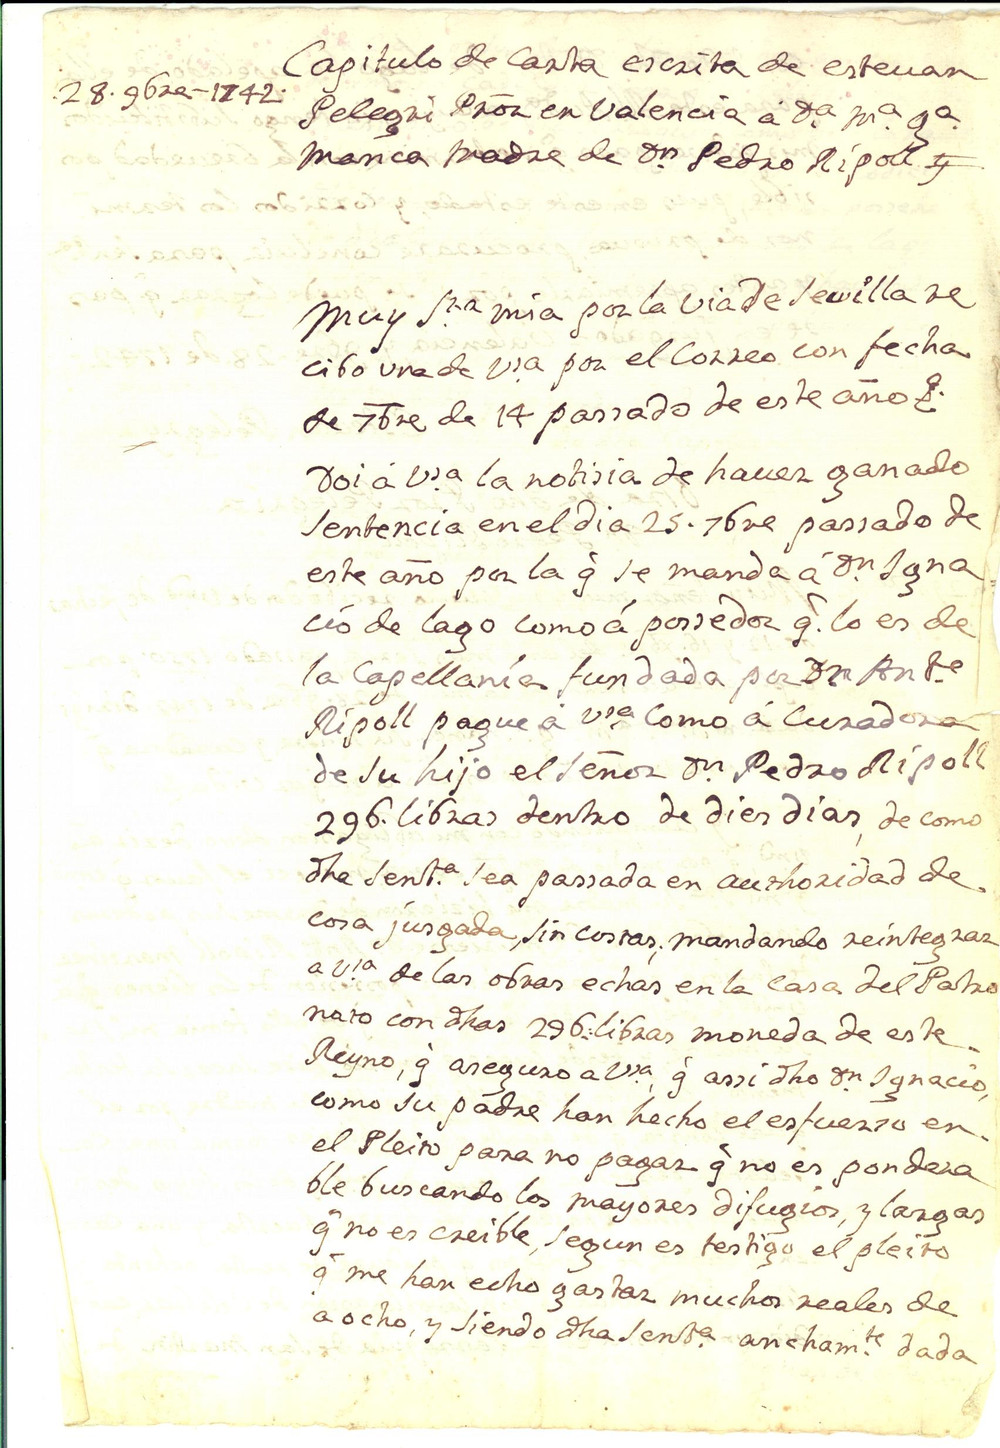 Capitulo de Carta escrita de estevan
28. 9bre - 1742.
Pelegri Pror en Valencia á Da. Ma. ga.
Manca Madre de Dn. Pedro Ripoll
Muy Sra. mia por la via de Sevilla re
cibo una de Vsa por el Correo con fecha
de 7bre de 14 passado de este año
Doi á Vsa la notisia de haver ganado
sentencia en el dia 25. 7bre passado de
este año por la q̃ se manda á Dn Igna
ció de lago como á posseedor q̃. lo es de
la Capellanía fundada por Dn Anto
Ripoll pague á Vsa Como á Curadora
de su hijo el Señor Dn. Pedro Ripoll
296. libras dentro de dies dias, de como
dha Senta. sea passada en authoridad de.
cosa jusgada, sin costas, mandando reintegrar
a Vsa de las obras echas en la Casa del Patro
nato con dhas 296. libras moneda de este
Reyno, q̃ aseguro a Vsa, q̃ assi dho Dn Ignacio,
como su padre han hecho el esfuerso en.
el Pleito para no pagar q̃ no es pondera
ble buscando los mayores difugios, y largas
q̃ no es creible, segun es testigo el pleito
q̃ me han echo gastar muchos reales de
a ocho, y siendo dha Senta. anchamte. dada